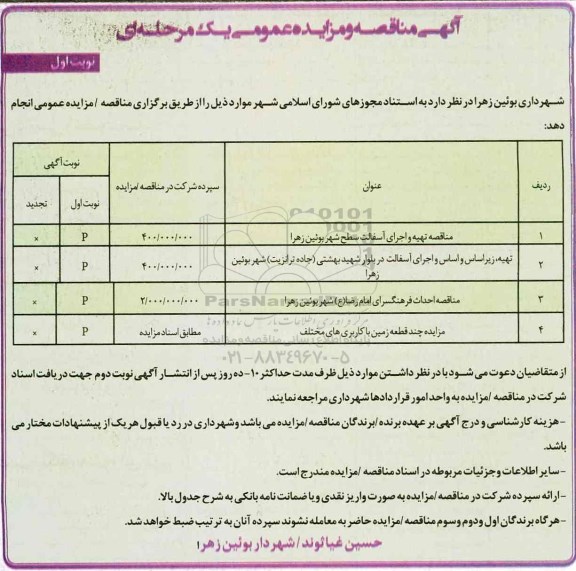 آگهی مناقصه و مزایده عمومی یک مرحله ای
نوبت اول
شهرداری بوئین زهرا در نظر دارد به استناد مجوزهای شورای اسلامی شهر موارد ذیل را از طریق برگزاری مناقصه /مزایده عمومی انجام
دهد:
ردیف
عنوان
سپرده شرکت در مناقصه /مزایده
نوبت آگهی
نوبت اول
تجدید
۱ مناقصه تهیه و اجرای آسفالت سطح شهر بوئین زهرا ۴۰۰/۰۰۰/۰۰۰ P ×
۲ تهیه، زیراساس و اساس و اجرای آسفالت در بلوار شهید بهشتی (جاده ترانزیت) شهر بوئین
زهرا ۴۰۰/۰۰۰/۰۰۰ P ×
۳ مناقصه احداث فرهنگسرای امام رضا(ع) شهر بوئین زهرا ۲/۰۰۰/۰۰۰/۰۰۰ P ×
۴ مزایده چند قطعه زمین با کاربری های مختلف مطابق اسناد مزایده P ×
۰۲۱-۸۸۳۴۹۶۷۰-۵
از متقاضیان دعوت می شود با در نظر داشتن موارد ذیل ظرف مدت حداکثر ۱۰- ده روز پس از انتشار آگهی نوبت دوم جهت دریافت اسناد
شرکت در مناقصه /مزایده به واحد امور قراردادها شهرداری مراجعه نمایند.
-هزینه کارشناسی و درج آگهی بر عهده برنده /برندگان مناقصه /مزایده می باشد و شهرداری در رد یا قبول هر یک از پیشنهادات مختار می
باشد.
-سایر اطلاعات و جزئیات مربوطه در اسناد مناقصه /مزایده مندرج است.
-ارائه سپرده شرکت در مناقصه /مزایده به صورت واریز نقدی و یا ضمانت نامه بانکی به شرح جدول بالا.
-هرگاه برندگان اول و دوم و سوم مناقصه /مزایده حاضر به معامله نشوند سپرده آنان به ترتیب ضبط خواهد شد.
حسین غیاثوند / شهردار بوئین زهرا